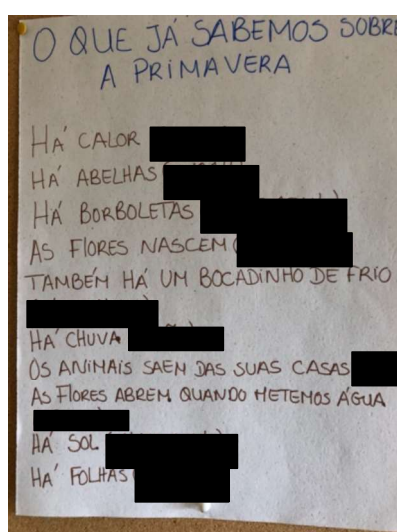 O QUE JÁ SABEMOS SOBRE
A PRIMAVERA
HÁ CALOR
HÁ ABELHAS
HÁ BORBOLETAS
AS FLORES NASCEM
TAMBÉM HÁ UM BOCADINHO DE FRIO
HÁ CHUVA
OS ANIMAIS SAEM DAS SUAS CASAS
AS FLORES ABREM QUANDO METEMOS ÁGUA
HÁ SOL
HÁ FOLHAS